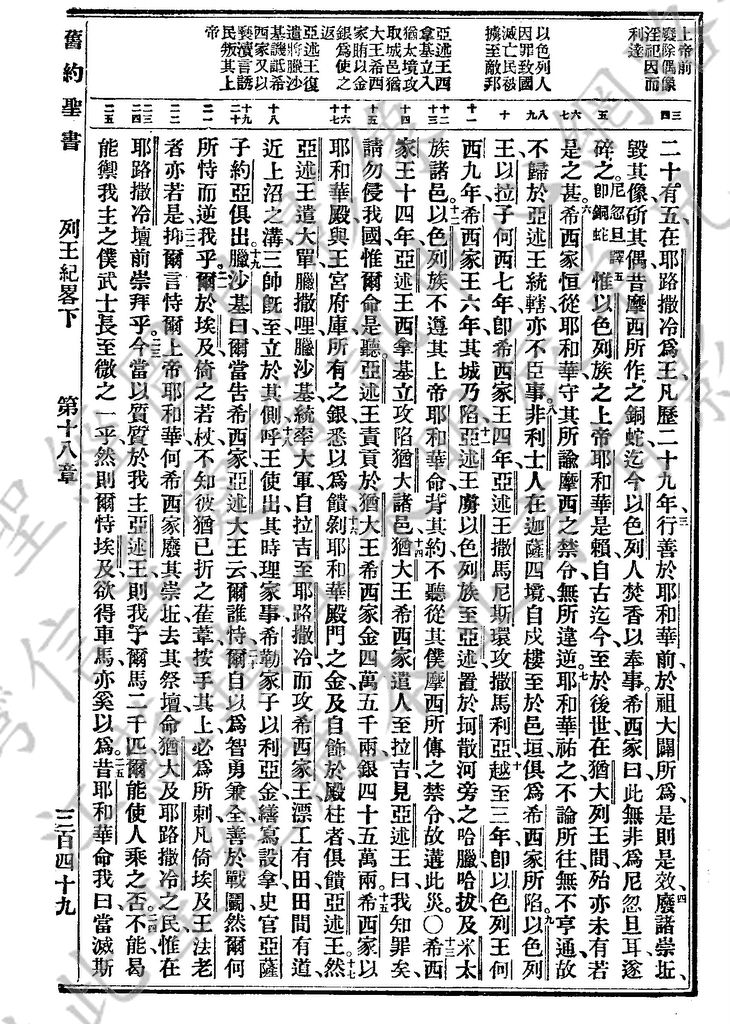 上帝前
毀除偶像
淫祀因而
利達
以色列人
因罪致國
滅亡民被
擄至敵邦
亞述王西
拿基立入
猶太境攻
取城邑猶
大王希西
家賄以金
銀爲使之
返
亞述王復
遣將臘沙
基譏詆希
西家又以
褻瀆言誘
民叛其上
帝
二十有五在耶路撒冷爲王凡歷二十九年三行善於耶和華前於祖大闢所爲是則是效四廢諸崇坵
毀其像斫其偶昔摩西所作之銅蛇迄今以色列人焚香以奉事希西家曰此無非爲尼忽旦耳遂
碎之尼忽旦譯卽銅蛇五惟以色列族之上帝耶和華是賴自古迄今至於後世在猶大列王間殆亦未有若
是之甚六希西家恒從耶和華守其所諭摩西之禁令無所違逆七耶和華祐之不論所往無不亨通故
不歸於亞述王統轄亦不臣事八非利士人在迦薩四境自戍樓至於邑垣俱爲希西家所陷九以色列
王以拉子何西七年卽希西家王四年亞述王撒馬尼斯環攻撒馬利亞十越至三年卽以色列王何
西九年希西家王六年其城乃陷十一亞述王虜以色列族至亞述置於坷散河旁之哈臘哈拔及米太
族諸邑十二以色列族不遵其上帝耶和華命背其約不聽從其僕摩西所傳之禁令故遘此災○十三希西
家王十四年亞述王西拿基立攻陷猶大諸邑十四猶大王希西家遣人至拉吉見亞述王曰我知罪矣
請勿侵我國惟爾命是聽亞述王責貢於猶大王希西家金四萬五千兩銀四十五萬兩十五希西家以
耶和華殿與王宮府庫所有之銀悉以爲饋十六剝耶和華殿門之金及自飾於殿柱者俱饋亞述王十七然
亞述王遣大單臘撒哩臘沙基統率大軍自拉吉至耶路撒冷而攻希西家王漂工有田田間有道
近上沼之溝三帥旣至立於其側十八呼王使出其時理家事希勒家子以利亞金繕寫設拿史官亞薩
子約亞俱出十九臘沙基曰爾當告希西家亞述大王云爾誰恃二十爾自以爲智勇兼全善於戰鬭然爾何
所恃而逆我乎二一爾於埃及倚之若杖不知彼猶已折之萑葦按手其上必爲所刺凡倚埃及王法老
者亦若是二二抑爾言恃爾上帝耶和華何希西家廢其崇坵去其祭壇命猶大及耶路撒冷之民惟在
耶路撒冷壇前崇拜乎二三今當以質質於我主亞述王則我予爾馬二千匹爾能使人乘之否二四不能曷
能禦我主之僕武士長至微之一乎然則爾恃埃及欲得車馬亦奚以爲二五昔耶和華命我曰當滅斯
舊約聖書 列王紀畧下 第十八章 三百四十九